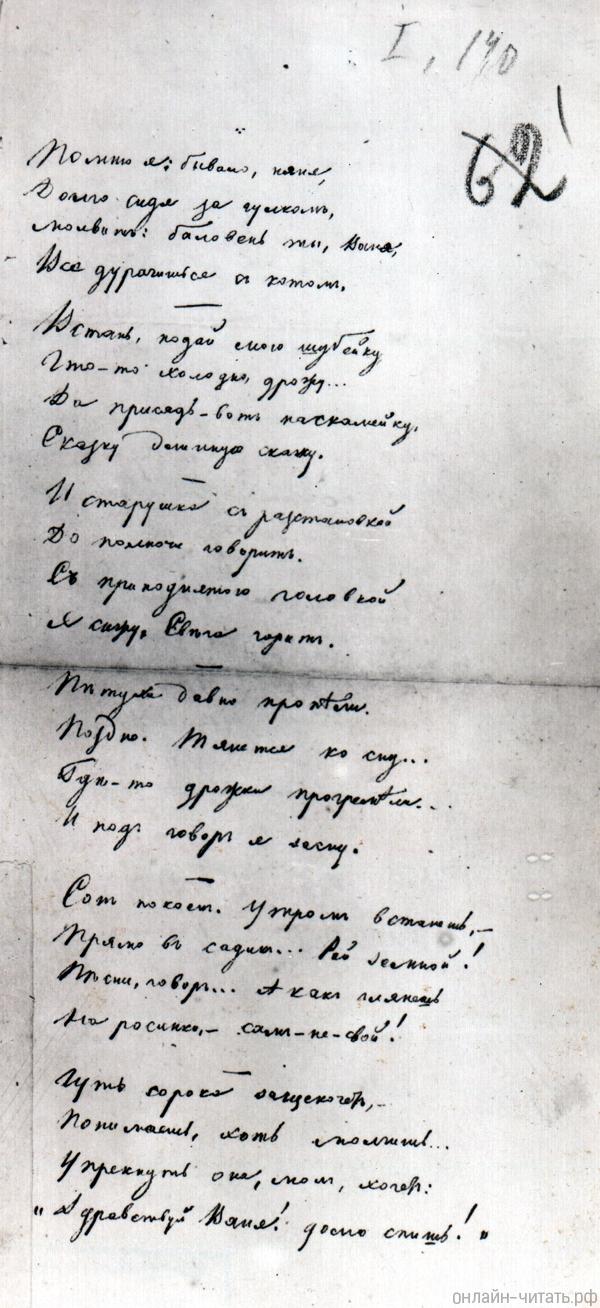 I, 140
62
Помню я: бывало, няня,
Долго сидя за чулкомъ,
Молвитъ: баловень ты, Ваня,
Все дурачишься съ котомъ.
Встань, подай мою шубейку
Что-то холодно, дрожу...
Да присядь-вотъ на скамейку,
Сказку длинную скажу.
И старушка съ разстановкой
До полночи говоритъ.
Съ приподнятою головкой
Я сижу. Свѣча горитъ.
Пѣтухи давно пропѣли.
Поздно. Тянется ко сну...
Гдѣ-то дрожки прогремѣли...
И подъ говоръ я засну.
Сонъ покоенъ. Утромъ встанешь,-
Прямо въ садикъ... Рай земной!
Пѣсни, говоръ... А какъ глянешь
На росинки,- самъ-не-свой!
Чуть сорока защекочетъ,-
Понимаешь, хоть молчишь...
Упрекнуть она, молъ, хочетъ:
"Здравствуй Ваня! долго спишь!"
онлайн-читать.рф